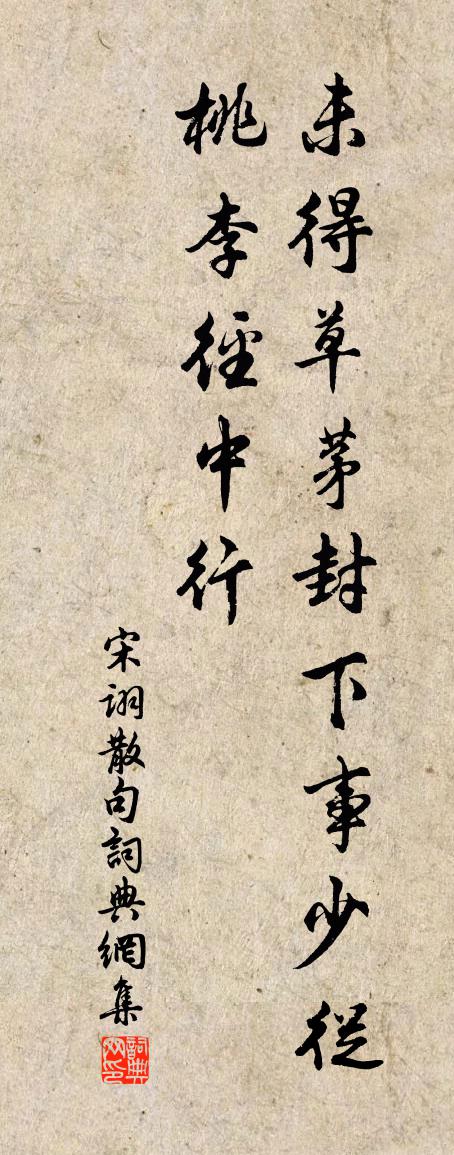 未得草茅封下事少從
桃李徑中行
宋詡散句詞典網集
詞典网印